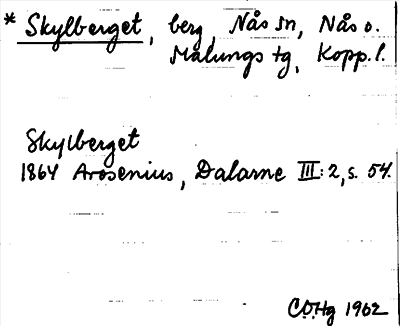 * Skylberget, berg, Nås sn, Nås o.
Malungs tg, Kopp. l.
Skylberget
1864 Arosenius, Dalarne III: 2, s. 54.
C.O.Hg 1962